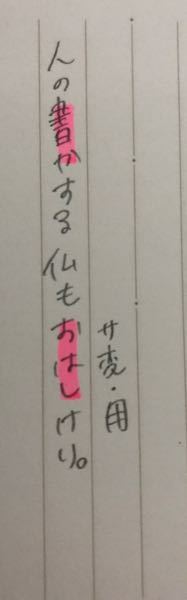 サ変・用
人の書かする仏もおはしけり。